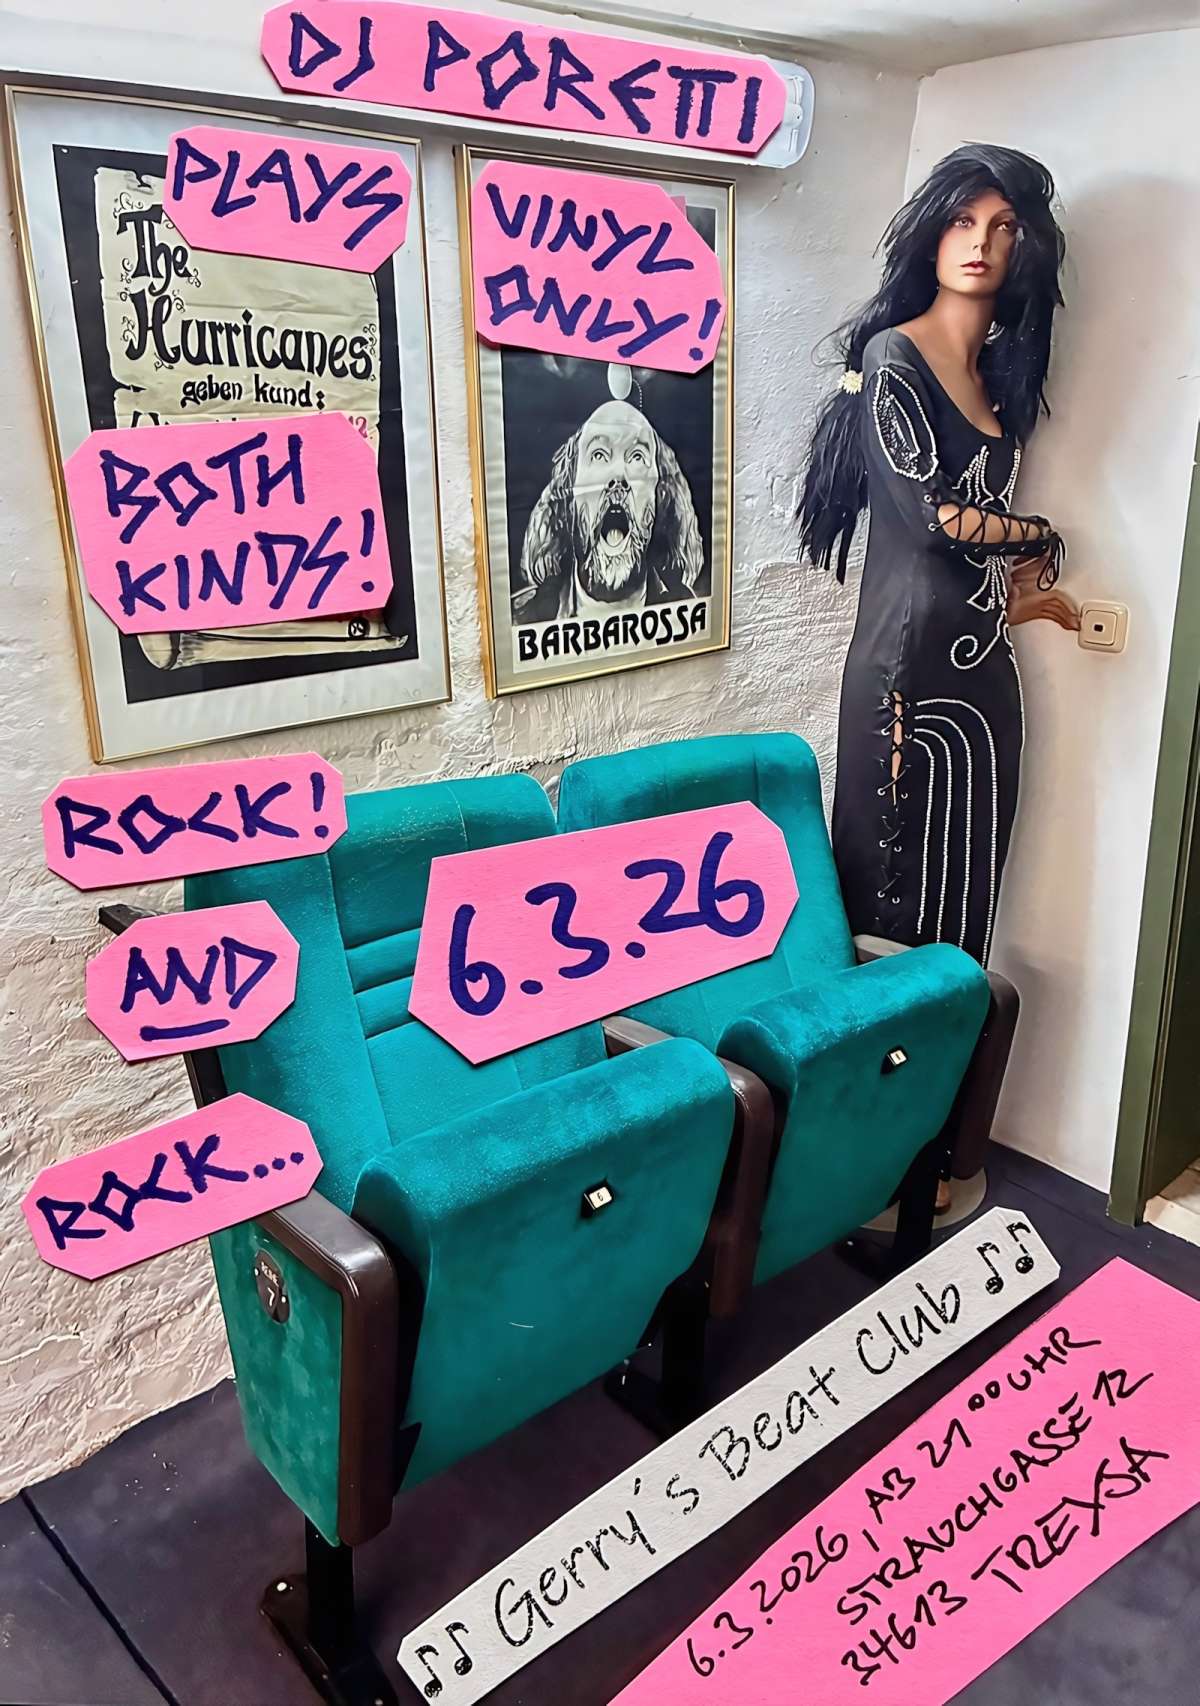 DJ PORETTI
PLAYS
VINYL
ONLY!
The
Hurricanes
geben kund:
12.
BOTH
KINDS!
BARBAROSSA
ROCK!
AND
ROCK...
6.3.26
1
6
REIHE
7
♫♫ Gerry´s Beat Club ♫♫
6.3.2026, AB 21°° UHR
STRAUCHGASSE 12
34613 TREYSA